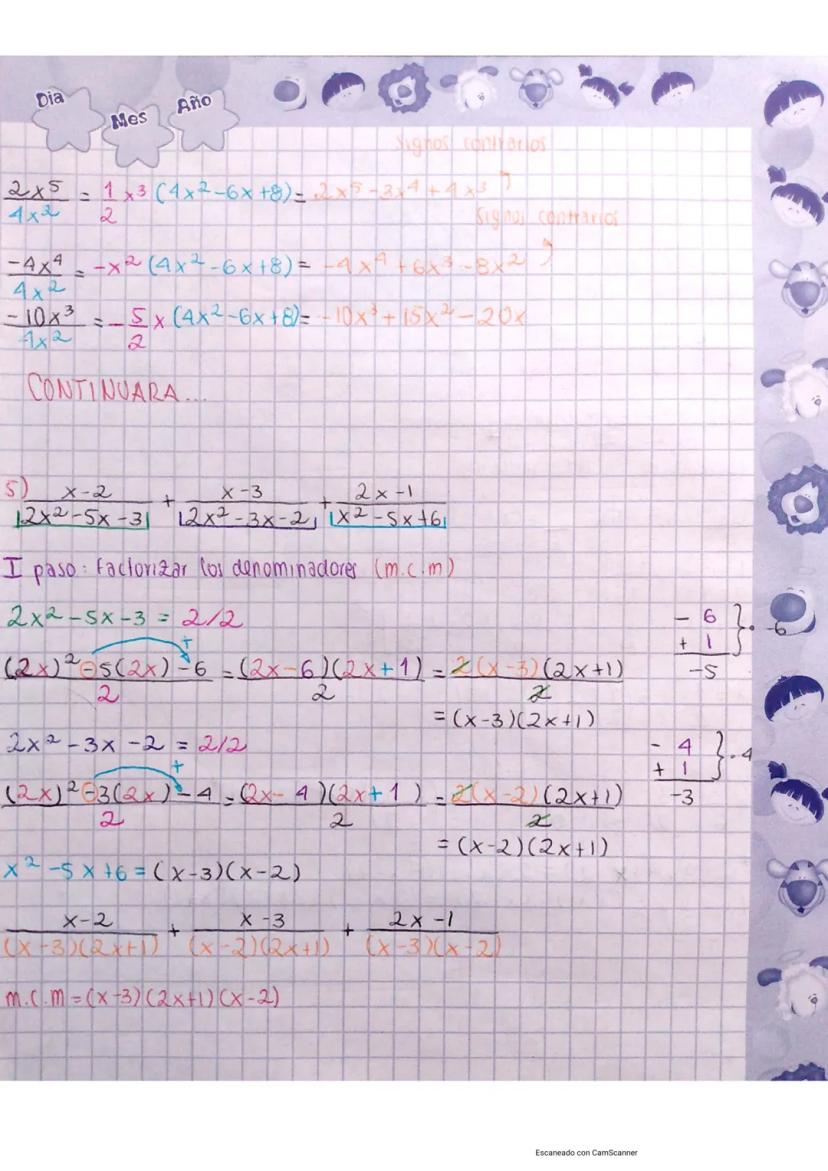 Dia Mes Año
Signos contrarios
2x⁵/4x² = 1/2 x³ (4x²-6x+8) = 2x⁵-3x⁴+4x³
Signos contrarios
-4x⁴/4x² = -x² (4x²-6x+8) = -4x⁴+6x³-8x²
-10x³/4x² = -5/2 x (4x²-6x+8) = -10x³+15x²-20x
CONTINUARA...
5) x-2/2x²-5x-3 + x-3/2x²-3x-2 + 2x-1/x²-5x+6
I paso: Factorizar los denominadores (m.c.m)
2x²-5x-3 = 2/2
- 6 } · -6
+ 1
-5
+
(2x)²-5(2x)-6/2 = (2x-6)(2x+1)/2 = 2(x-3)(2x+1)/2
= (x-3)(2x+1)
2x²-3x-2 = 2/2
- 4 } · 4
+ 1
-3
+
(2x)²-3(2x)-4/2 = (2x-4)(2x+1)/2 = 2(x-2)(2x+1)/2
= (x-2)(2x+1)
x²-5x+6 = (x-3)(x-2)
x-2/(x-3)(2x+1) + x-3/(x-2)(2x+1) + 2x-1/(x-3)(x-2)
m.c.m = (x-3)(2x+1)(x-2)
Escaneado con CamScanner